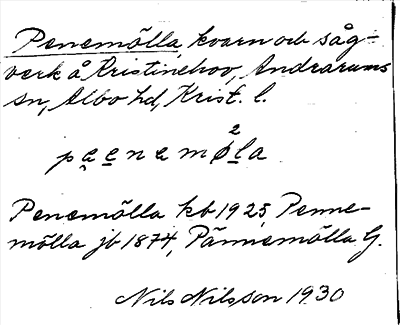 Penemölla, kvarn och såg-
verk å Kristinehov, Andrarums
sn, Albo hd, Krist. l.
2
pa̤e̲nemøl̲a
Penemölla kb 1925, Penne-
mölla jb 1874, Pännemölla G.
Nils Nilsson 1930